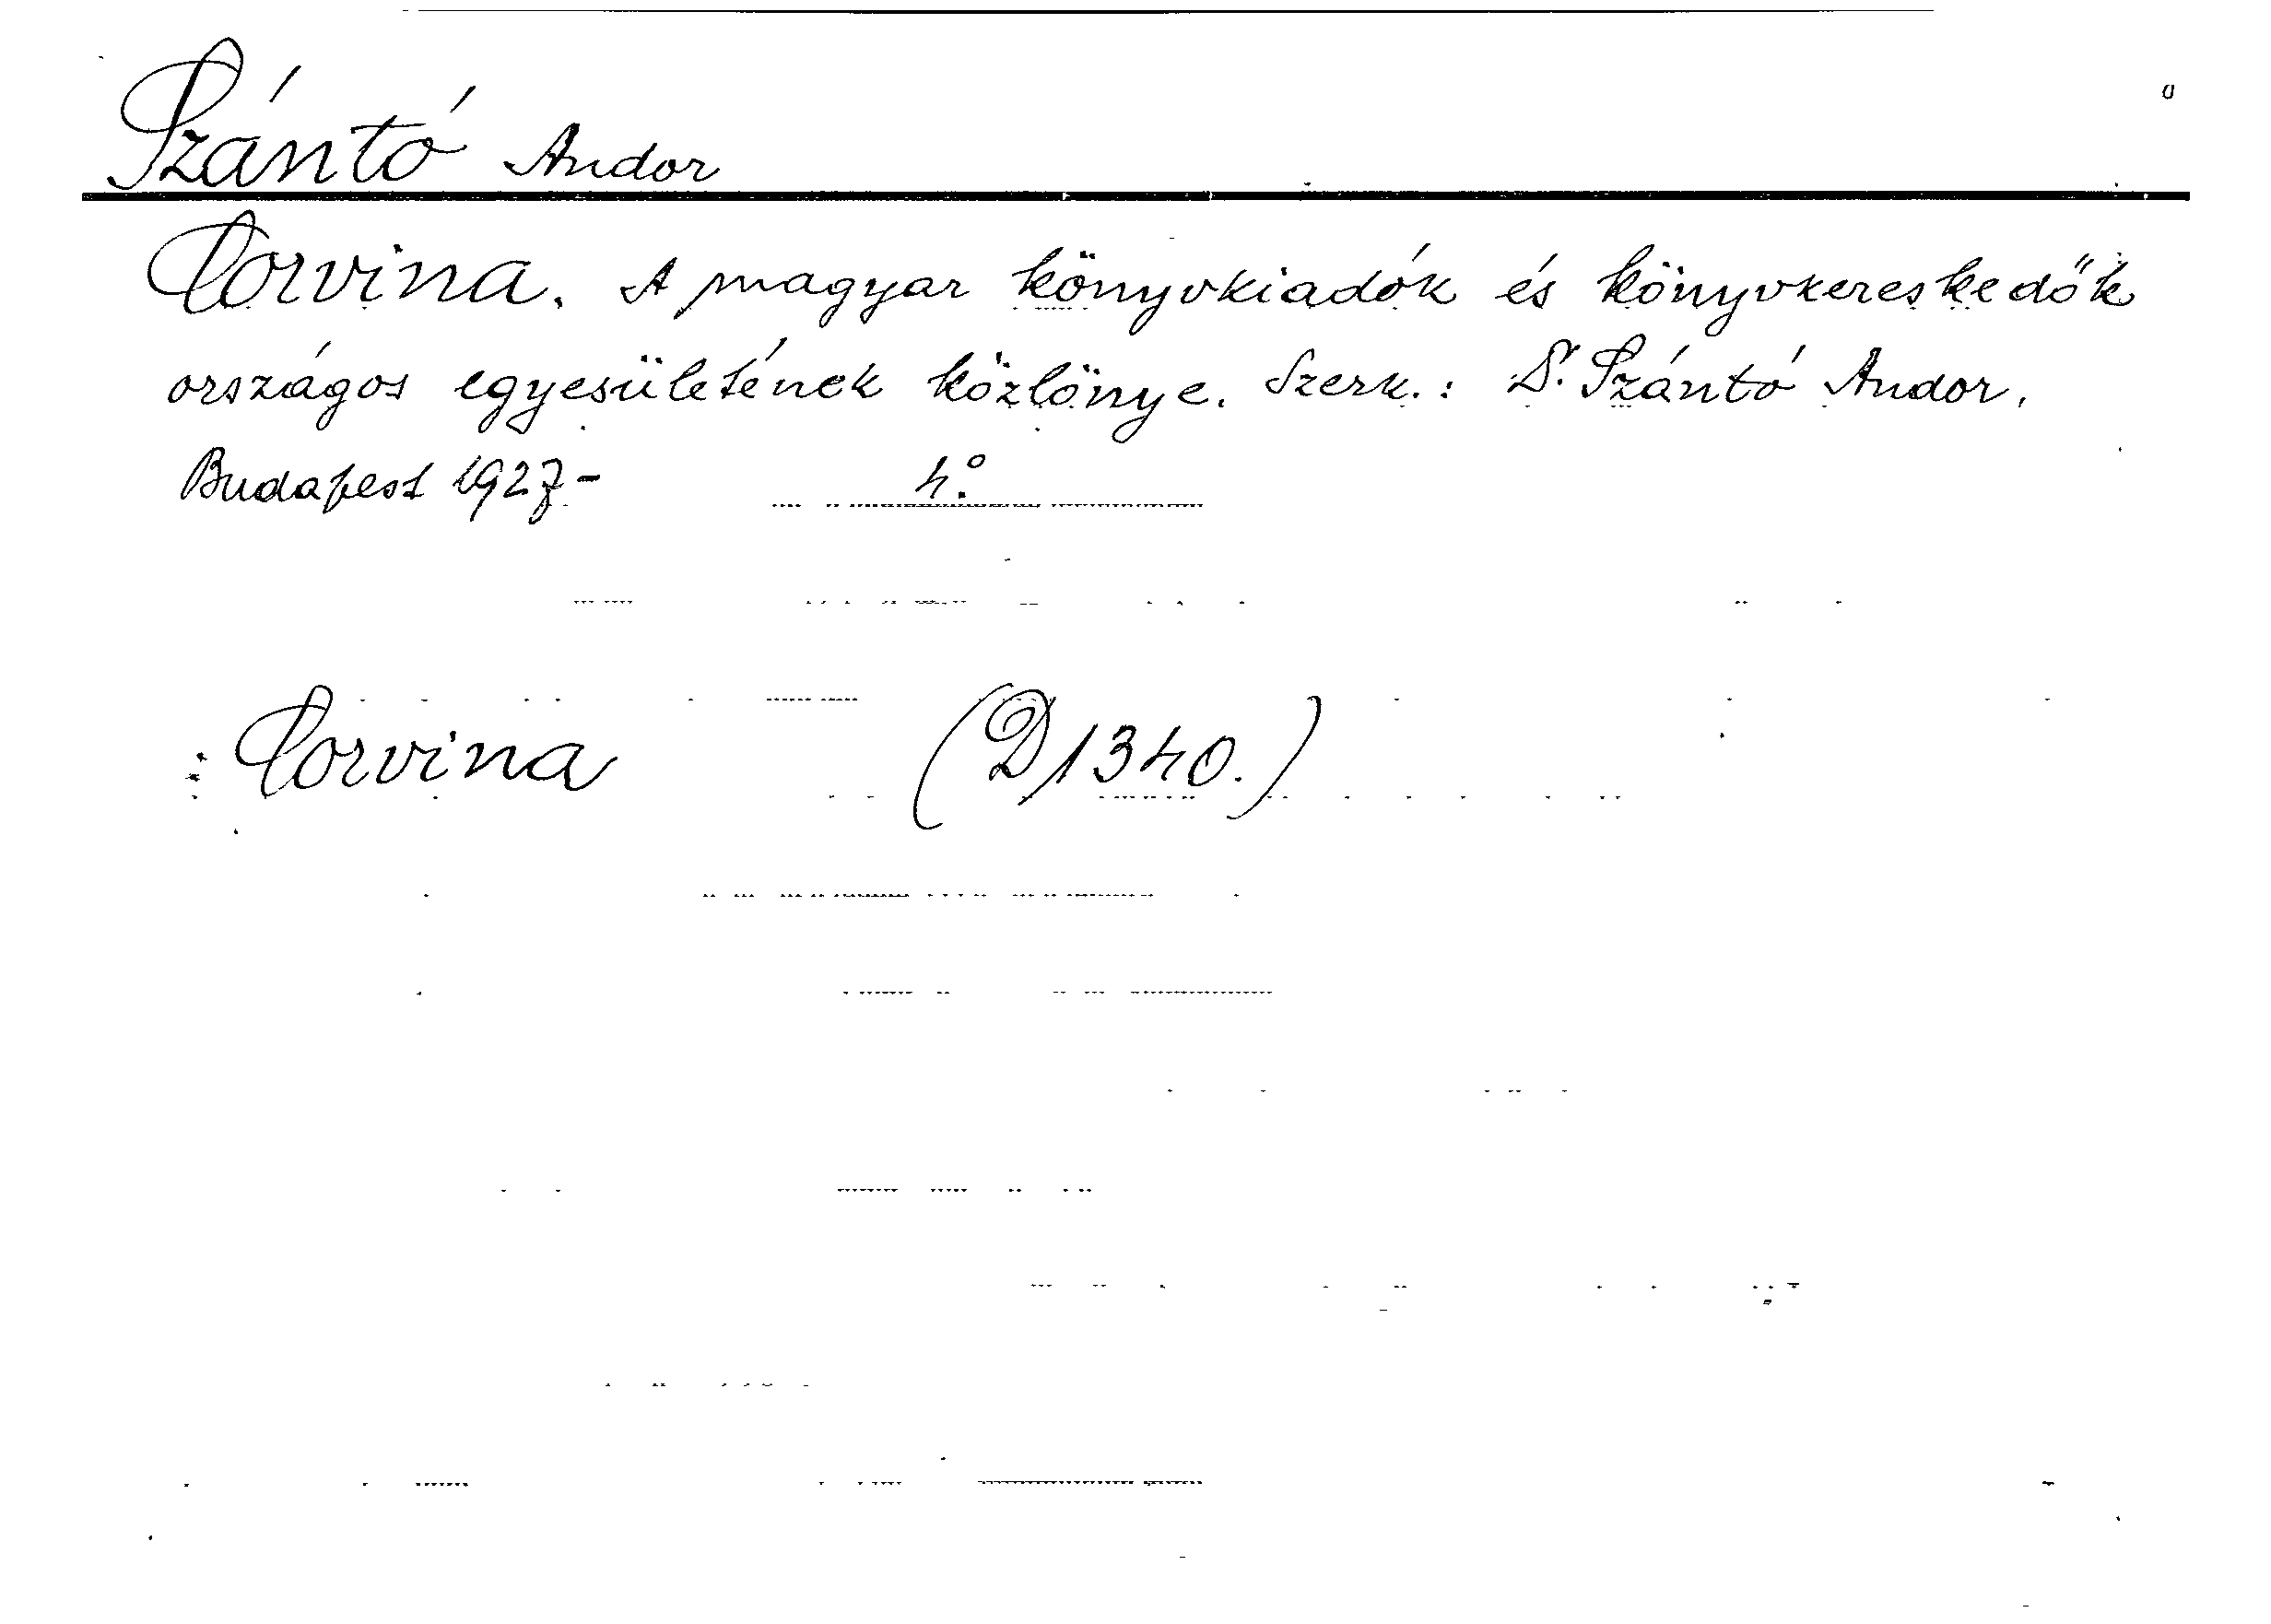 Szántó Andor
Corvina. A magyar könyvkiadók és könyvkereskedők
országos egyesületének közlönye. Szerk.: D<sup>r</sup>. Szántó Andor.
Budapest 1927- 4.°
: Corvina (D1340.)